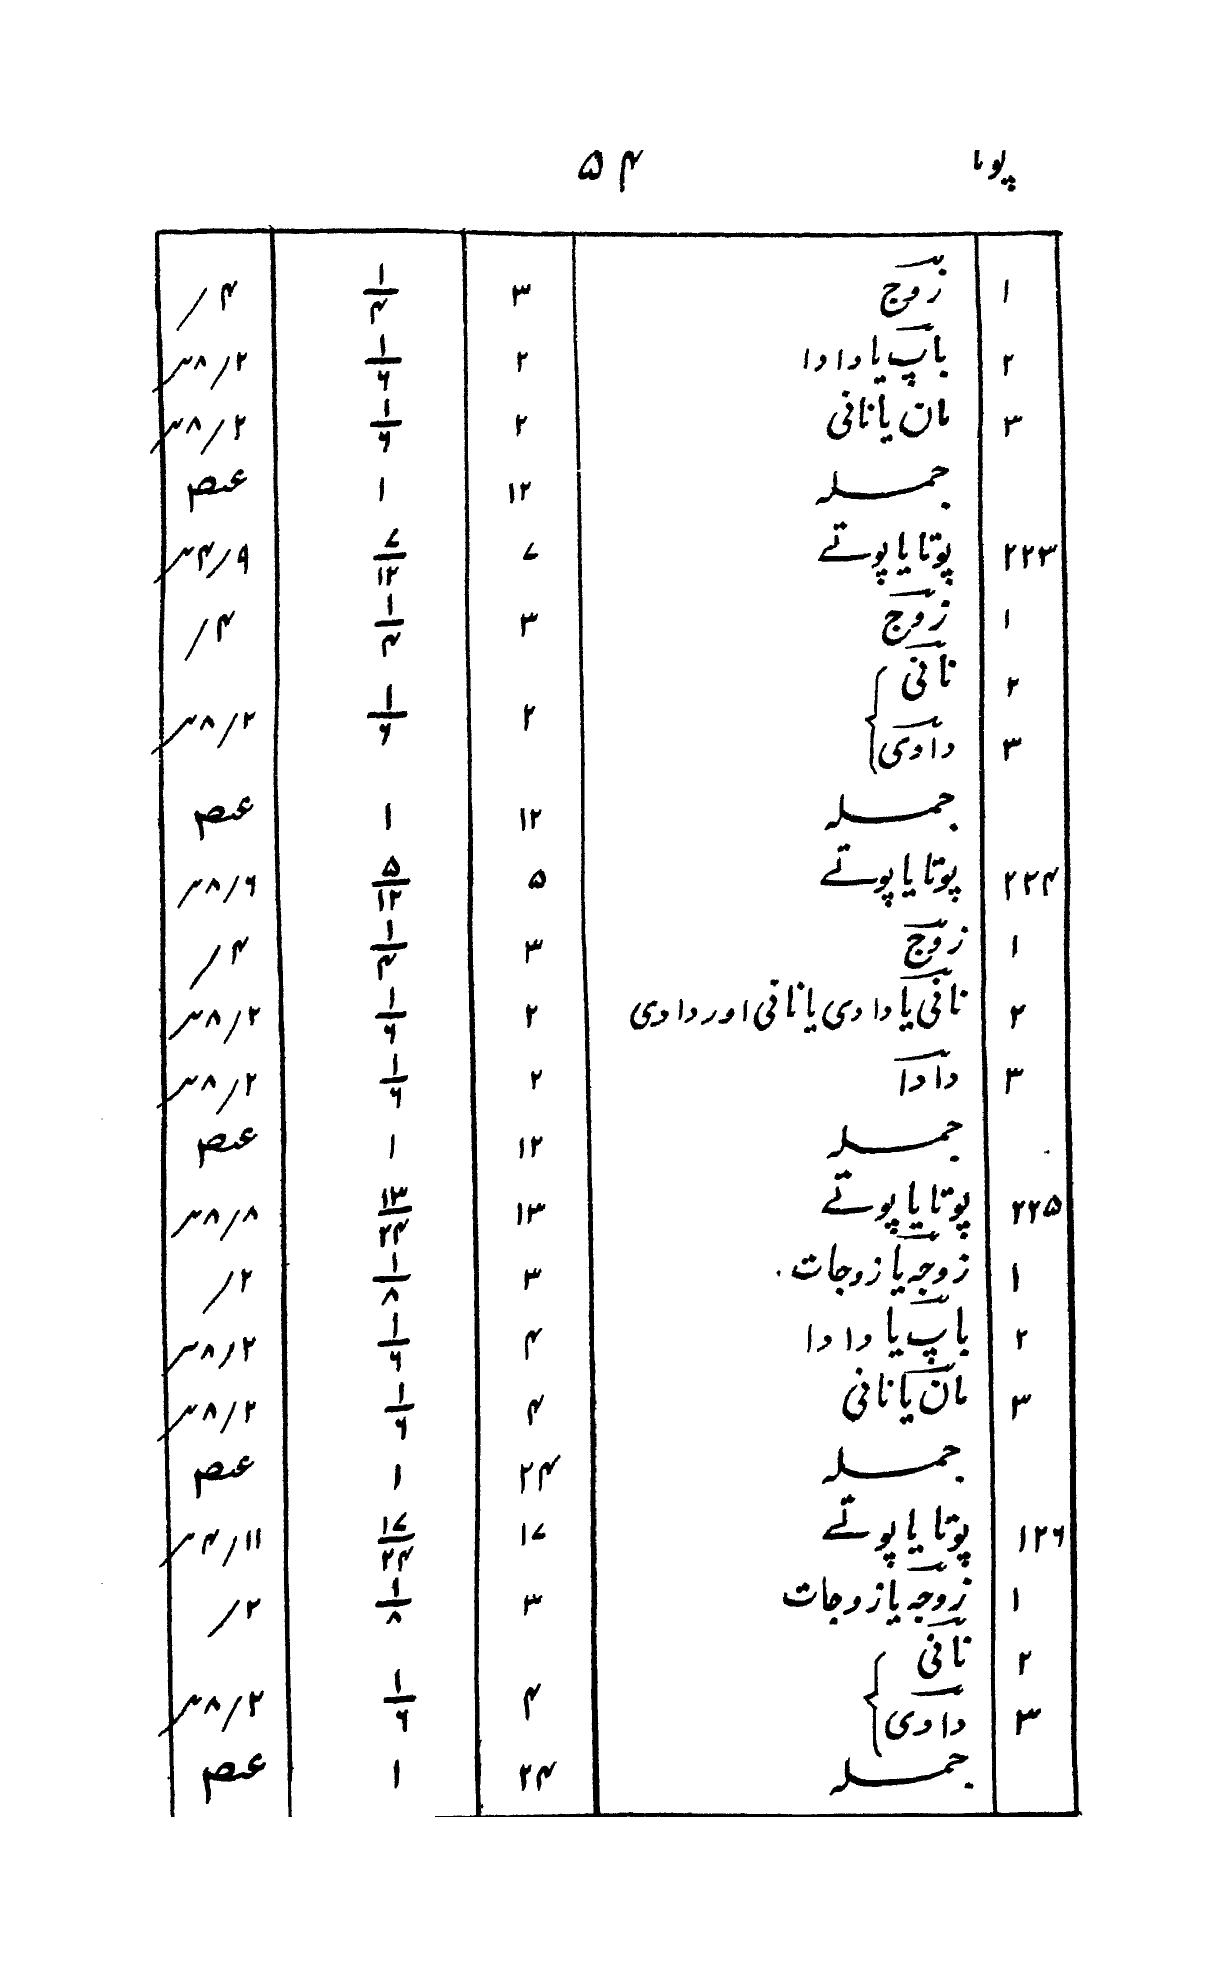 پوتا ۵۴
۱ زوج ۳ ۱/۴ ۴/
۲ باپ یا دادا ۲ ۱/۶ ۲/۸
۳ ماں یا نانی ۲ ۱/۶ ۲/۸
جملہ ۱۲ ۱ عصہ
۲۲۳ پوتا یا پوتے ۷ ۷/۱۲ ۹/۴
۱ زوج ۳ ۱/۴ ۴/
۲ نانی
۳ دادی ۲ ۱/۶ ۲/۸
جملہ ۱۲ ۱ عصہ
۲۲۴ پوتا یا پوتے ۵ ۵/۱۲ ۶/۸
۱ زوج ۳ ۱/۴ ۴/
۲ نانی یا دادی یا نانی اور دادی ۲ ۱/۶ ۲/۸
۳ دادا ۲ ۱/۶ ۲/۸
جملہ ۱۲ ۱ عصہ
۲۲۵ پوتا یا پوتے ۱۳ ۱۳/۲۴ ۸/۸
۱ زوجہ یا زوجات ۳ ۱/۸ ۲/
۲ باپ یا دادا ۴ ۱/۶ ۲/۸
۳ ماں یا نانی ۴ ۱/۶ ۲/۸
جملہ ۲۴ ۱ عصہ
۱۲۶ پوتا یا پوتے ۱۷ ۱۷/۲۴ ۱۱/۴
۱ زوجہ یا زوجات ۳ ۱/۸ ۲/
۲ نانی
۳ دادی ۴ ۱/۶ ۲/۸
جملہ ۲۴ ۱ عصہ